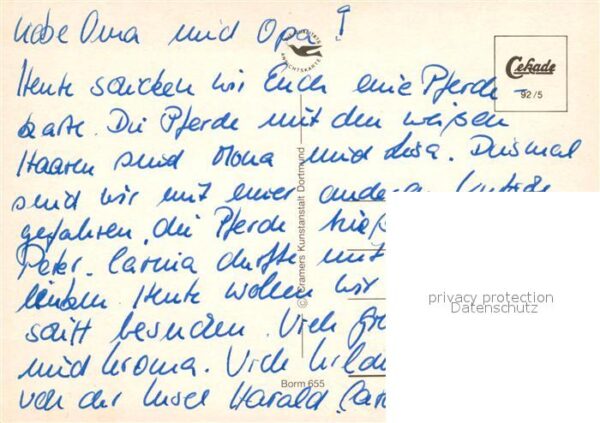 Liebe Oma und Opa!
Heute schicken wir Euch eine Pferde-
karte. Die Pferde mit den weißen
Haaren sind Mona und Lisa. Diesmal
sind wir mit einer anderen Kutsche
gefahren, die Pferde
Peter. Carina durfte mit
lenken. Heute wollen wir
besuchen. Viele
und Viele
von der Insel Harald,
ANSICHTSKARTE
Cekade
92/5
© Cramers Kunstanstalt Dortmund
Borm 655
privacy protection
Datenschutz